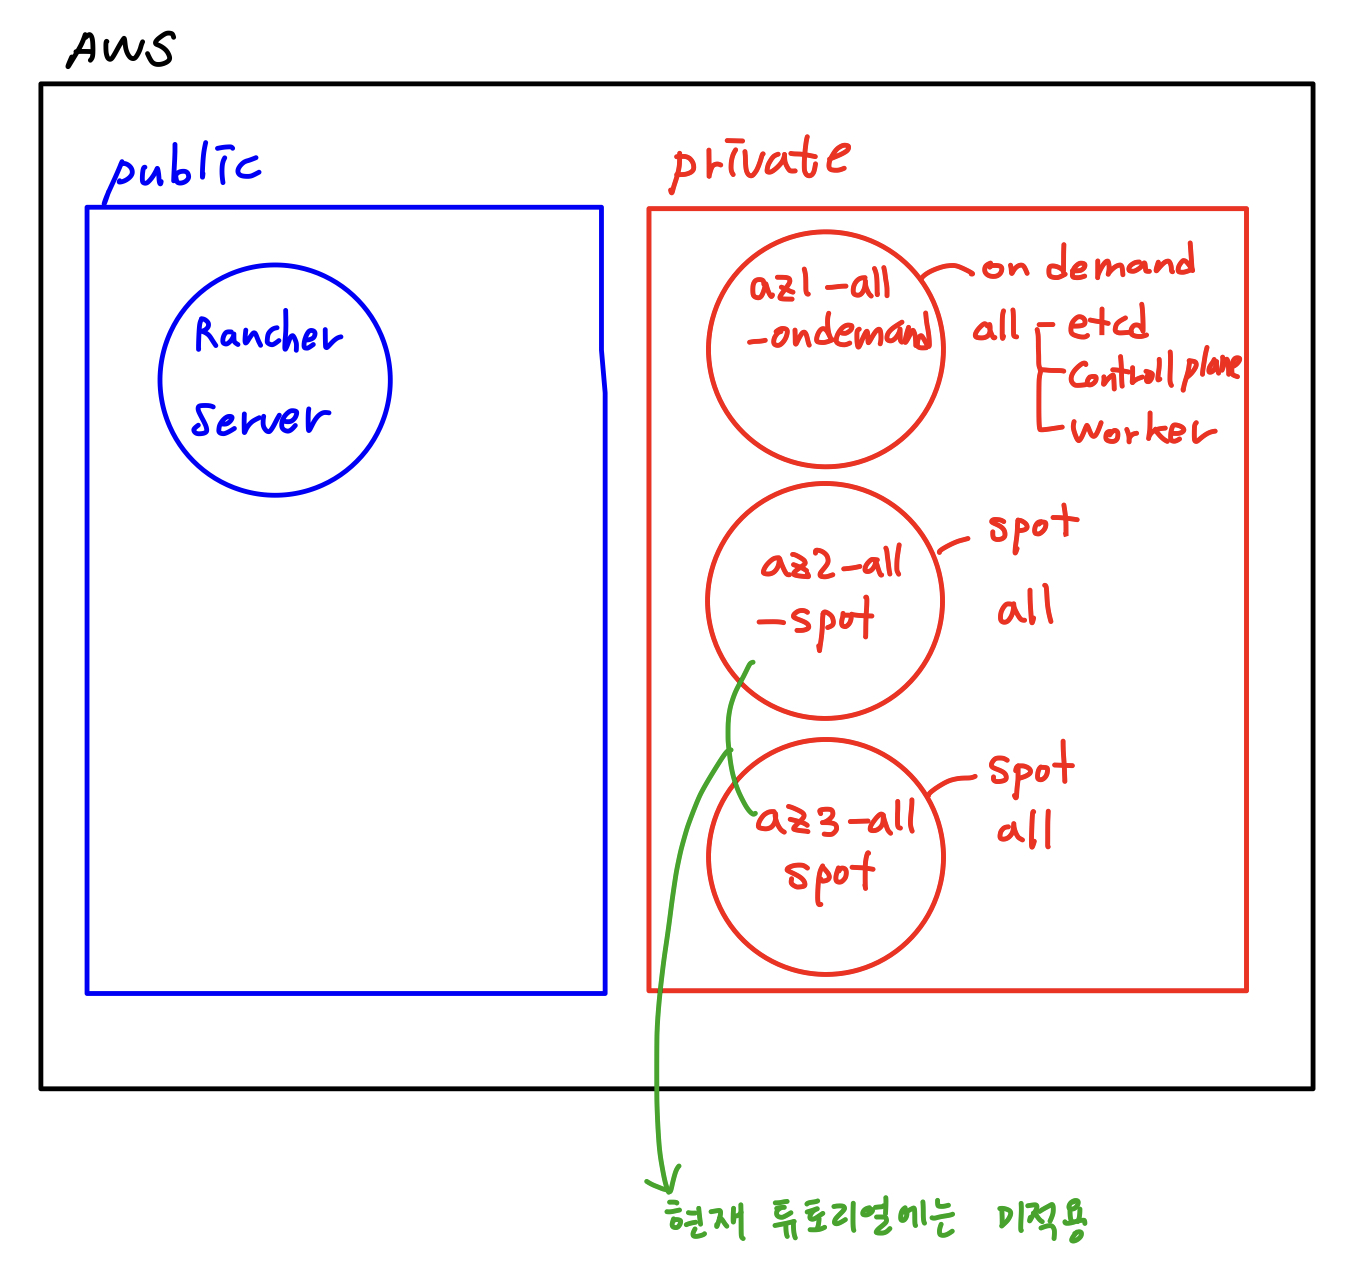 AWS
public
Rancher
Server
private
az1-all
-ondemand
on demand
all - etcd
Controll plane
worker
az2-all
-spot
spot
all
az3-all
spot
spot
all
현재 튜토리얼에는 미적용